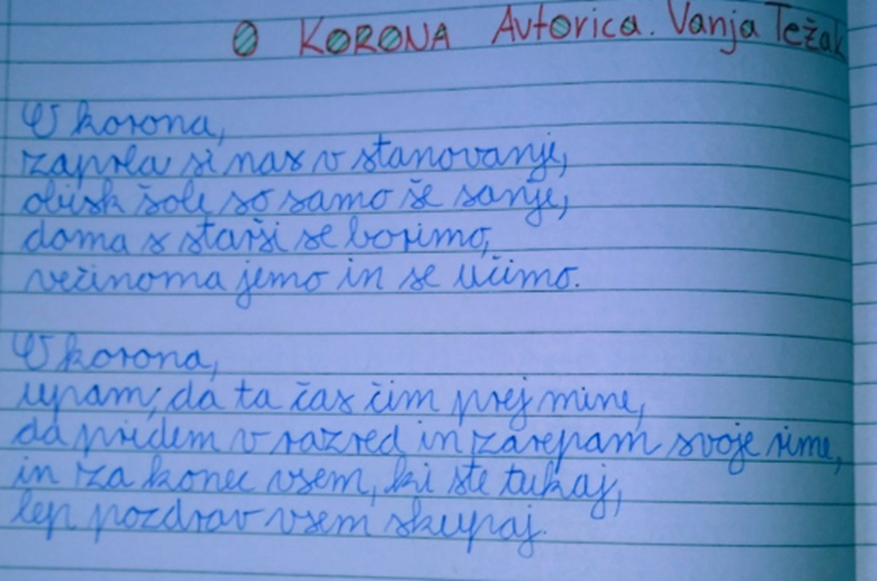 O KORONA Avtorica. Vanja Težak
O korona,
zaprla si nas v stanovanje,
obisk šole so samo še sanje,
doma s starši se borimo,
večinoma jemo in se učimo.
O korona,
upam, da ta čas čim prej mine,
da pridem v razred in zarepam svoje rime,
in za konec vsem, ki ste tukaj,
lep pozdrav vsem skupaj.